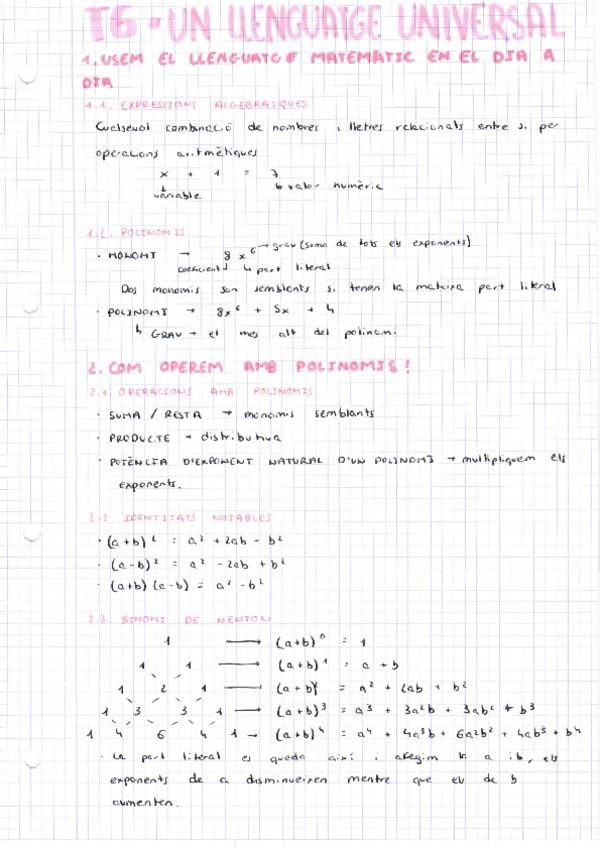 T6 - UN LLENGUATGE UNIVERSAL
1. USEM EL LLENGUATGE MATEMÀTIC EN EL DIA A
DIA
1.1. EXPRESSIONS ALGEBRAIQUES
Cualsevol combinació de nombres i lletres relacionats entre si per
operacions aritmètiques
x + 1 = 7
↳ variable ↳ valor numèric
1.2. POLINOMIS
· MONOMI → 8x⁶ → grau (suma de tots els exponents)
coeficient ↲ ↳ part literal
Dos monomis son semblants si tenen la mateixa part literal
· POLINOMI → 8x⁶ + 5x + 4
↳ GRAU → el mes alt del polinomi
2. COM OPEREM AMB POLINOMIS!
2.1. OPERACIONS AMB POLINOMIS
· SUMA / RESTA → monomis semblants
· PRODUCTE → distributiva
· POTÈNCIA D'EXPONENT NATURAL D'UN POLINOMI → multipliquem els
exponents.
2.2. IDENTITATS NOTABLES
· (a+b)² = a² + 2ab - b²
· (a-b)² = a² - 2ab + b²
· (a+b) (a-b) = a² - b²
2.3. BINOMI DE NEWTON
1 → (a+b)⁰ = 1
1 1 → (a+b)¹ = a + b
1 2 1 → (a+b)² = a² + 2ab + b²
1 3 3 1 → (a+b)³ = a³ + 3a²b + 3ab² + b³
1 4 6 4 1 → (a+b)⁴ = a⁴ + 4a³b + 6a²b² + 4ab³ + b⁴
· La part literal es queda així i afegim la a i b, els
exponents de a disminueixen mentre que els de b
aumenten.